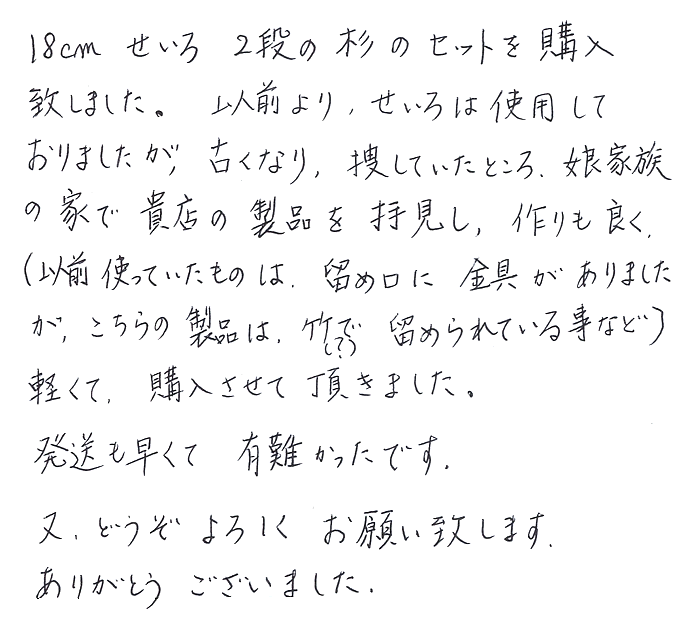 18cm せいろ 2段の 杉 の セットを 購入
致しました。 以前より、せいろは 使用して
おりましたが、古くなり、捜していたところ、娘家族
の 家で 貴店の 製品を 拝見し、作りも 良く、
(以前 使っていたものは、留め口に 金具が ありました
が、こちらの 製品は、竹で(?) 留められている事など)
軽くて、購入させて 頂きました。
発送も早くて 有難かったです。
又、どうぞ よろしく お願い致します。
ありがとう ございました。